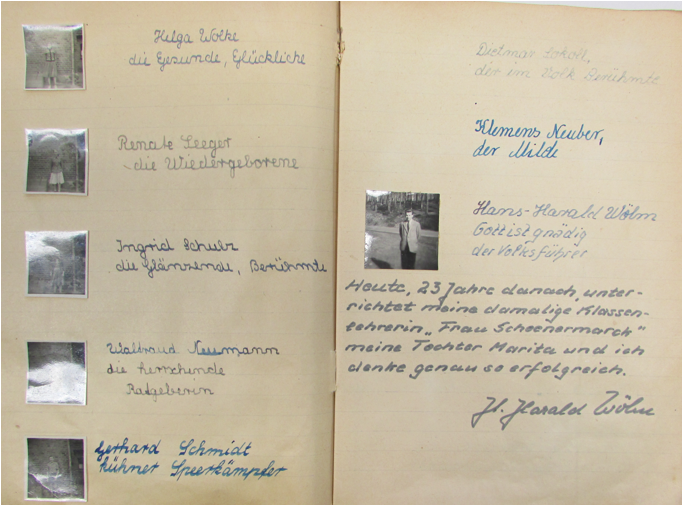 Helga Wolke
die Gesunde, Glückliche
Renate Seeger
die Wiedergeborene
Ingrid Schulz
die Glänzende, Berühmte
Waltraud Neumann
die herrschende
Ratgeberin
Gerhard Schmidt
kühner Speerkämpfer
Dietmar
der im Volk Berühmte
Klemens Neuber,
der Milde
Hans-Harald Wölm
Gott ist gnädig
der Volksführer
Heute, 23 Jahre danach, unter-
richtet meine damalige Klassen-
lehrerin „Frau Schoenermarck"
meine Tochter Marita und ich
denke genau so erfolgreich.
H. Harald Wölm